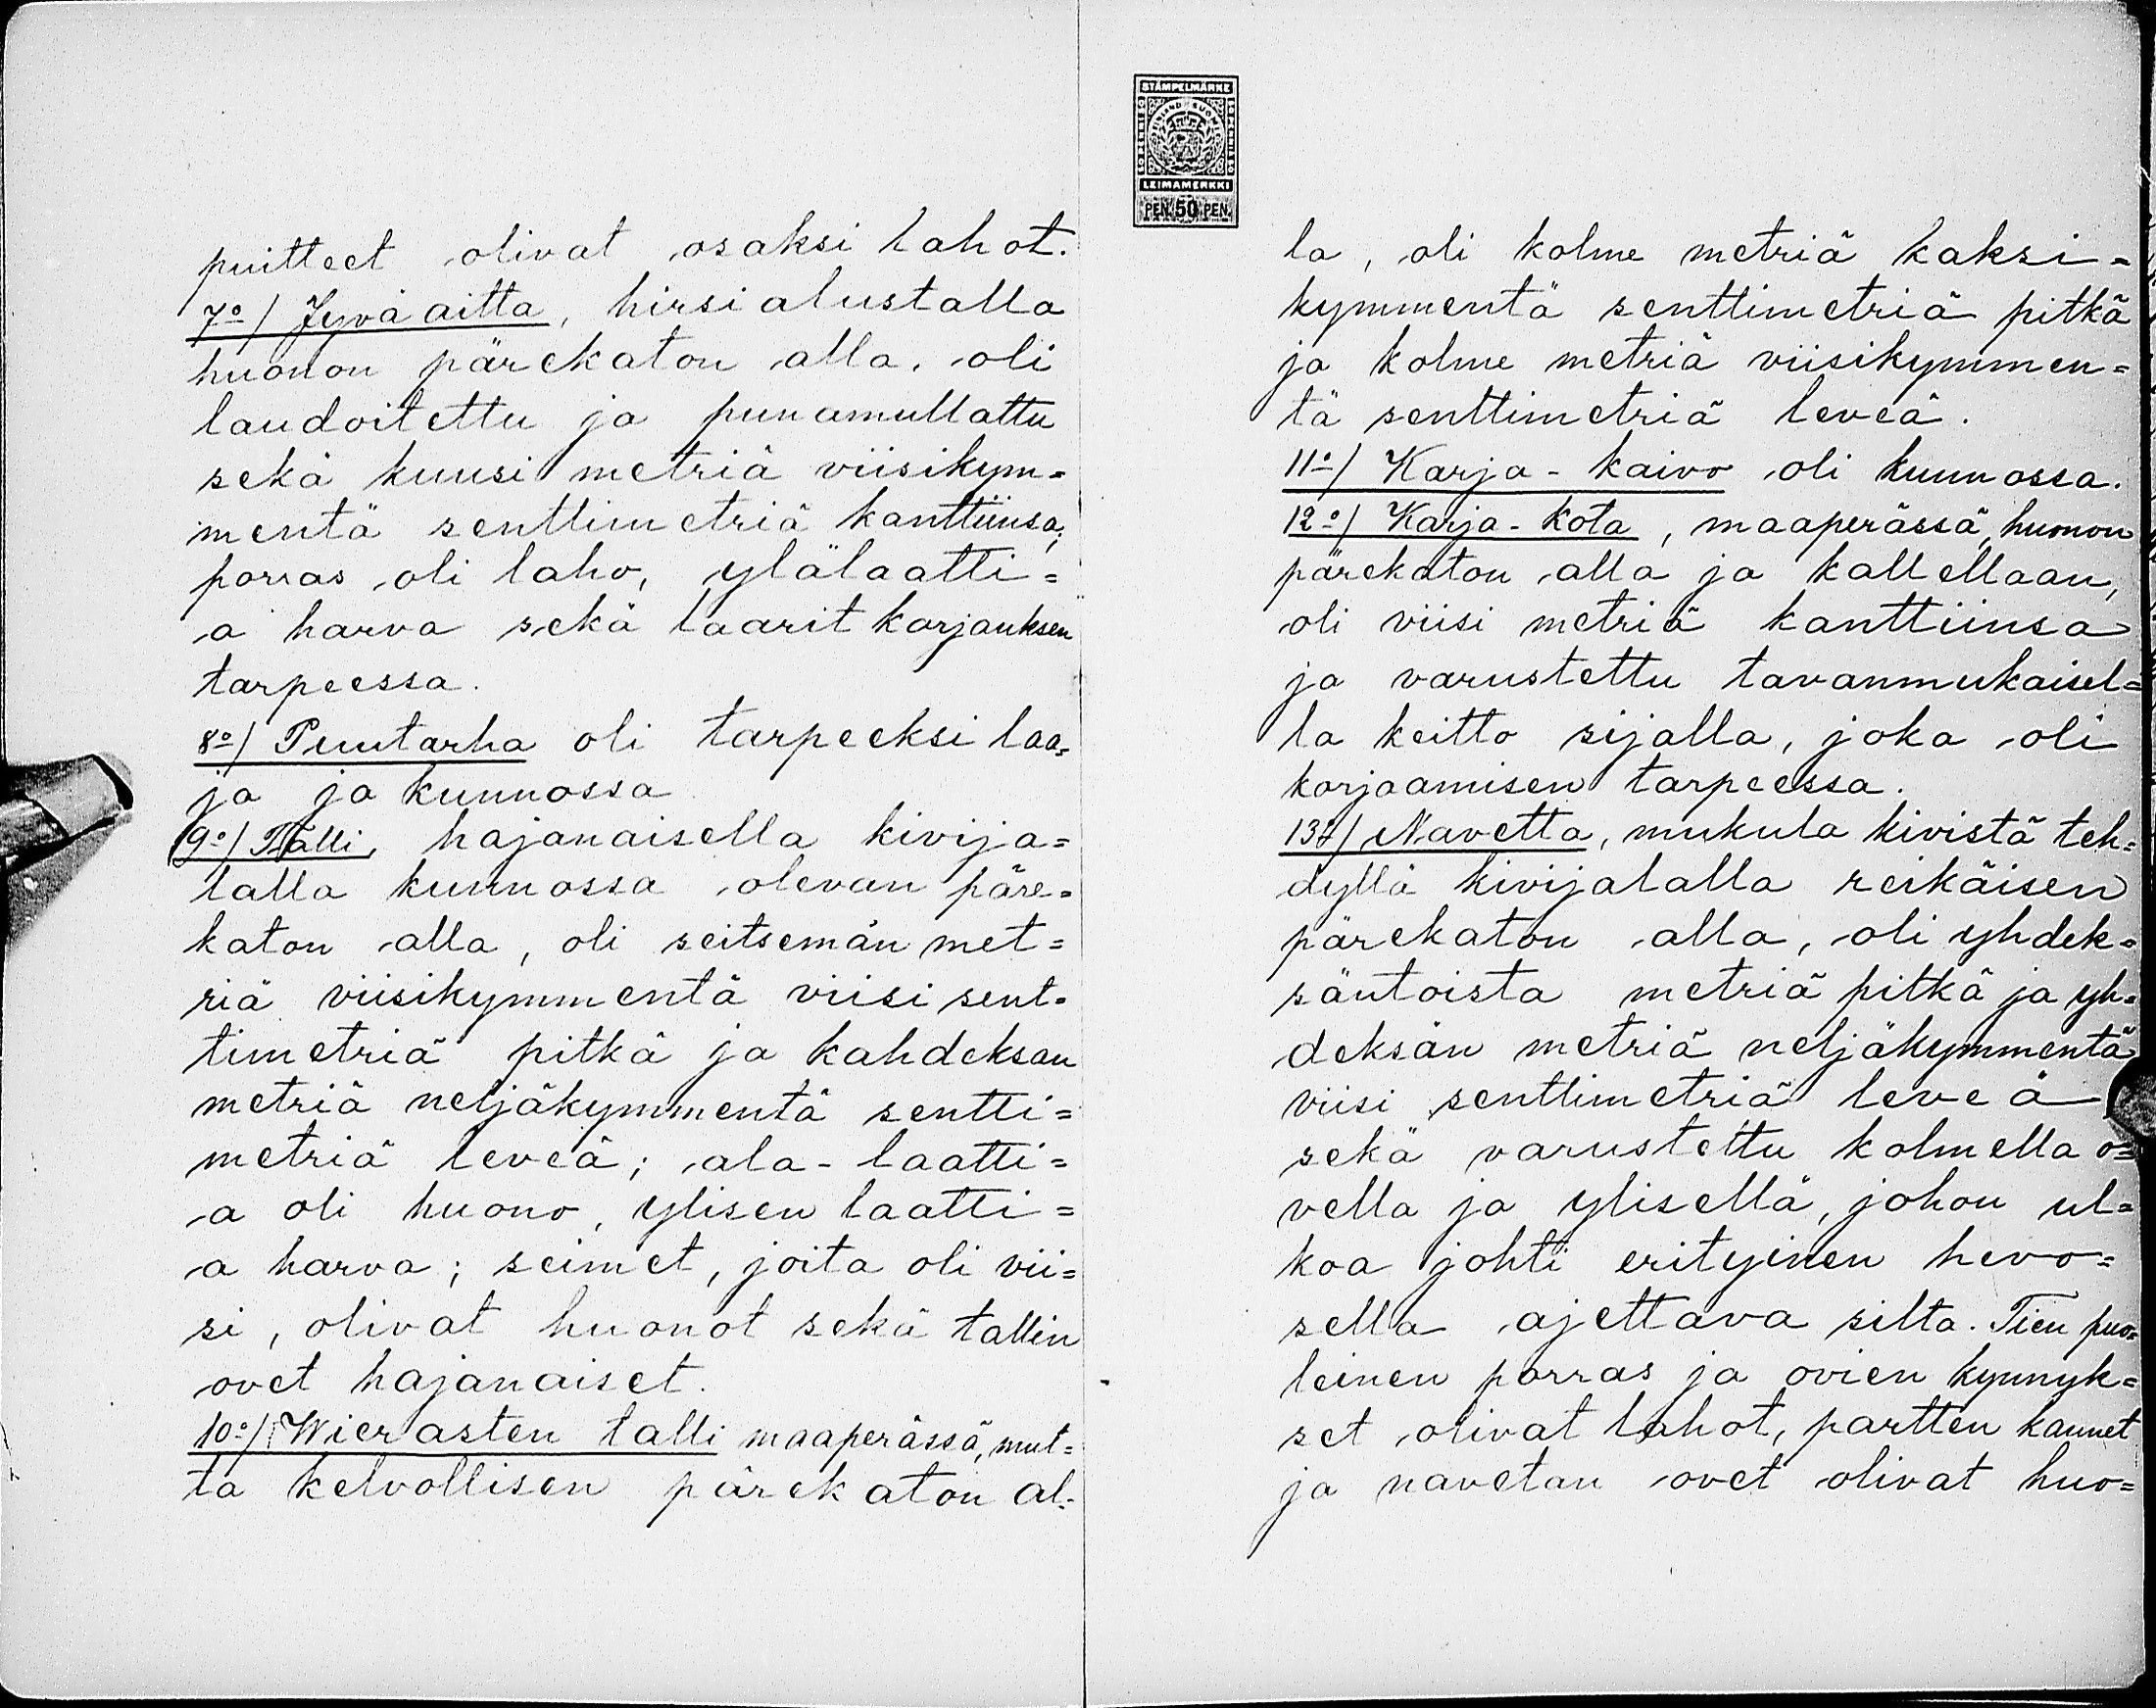 puitteet olivat osaksi lahot.
7o/ Jyvä aitta, hirsi alustalla
huonon pärekaton alla, oli
laudoitettu ja punamullattu
sekä kuusi metriä viisikym=
mentä senttimetriä kanttiinsa;
porras oli laho, ylälaatti=
a harva sekä laarit korjauksen
tarpeessa.
8o/ Puutarha oli tarpeeksi laa=
ja ja kunnossa
9o/ Talli, hajanaisella kivija=
lalla kunnossa olevan päre=
katon alla, oli seitsemän met=
riä viisikymmentä viisi sent=
timetriä pitkä ja kahdeksan
metriä neljäkymmentä sentti=
metriä leveä; ala-laatti=
a oli huono, ylisen laatti=
a harva; seimet, joita oli vii=
si, olivat huonot sekä tallin
ovet hajanaiset.
10o/ Wierasten talli maaperässä, mut=
ta kelvollisen pärekaton al=
STÄMPELMÄRKE
FINLAND SUOMI
50 PENNIÄ 50
LEIMAMERKKI
PEN. 50 PEN.
la, oli kolme metriä kaksi=
kymmentä senttimetriä pitkä
ja kolme metriä viisikymmen=
tä senttimetriä leveä.
11o/ Karja-kaivo oli kunnossa.
12o/ Karja-kota, maaperässä, huonon
pärekaton alla ja kallellaan,
oli viisi metriä kanttiinsa
ja varustettu tavanmukaisel=
la keitto sijalla, joka oli
korjaamisen tarpeessa.
13o/ Navetta, mukula kivistä teh=
dyllä kivijalalla reikäisen
pärekaton alla, oli yhdek=
säntoista metriä pitkä ja yh=
deksän metriä neljäkymmentä
viisi senttimetriä leveä
sekä varustettu kolmella o=
vella ja ylisellä, johon ul=
koa johti erityinen hevo=
sella ajettava silta. Tien puo=
leinen porras ja ovien kynnyk=
set olivat lahot, partten kannet
ja navetan ovet olivat huo=